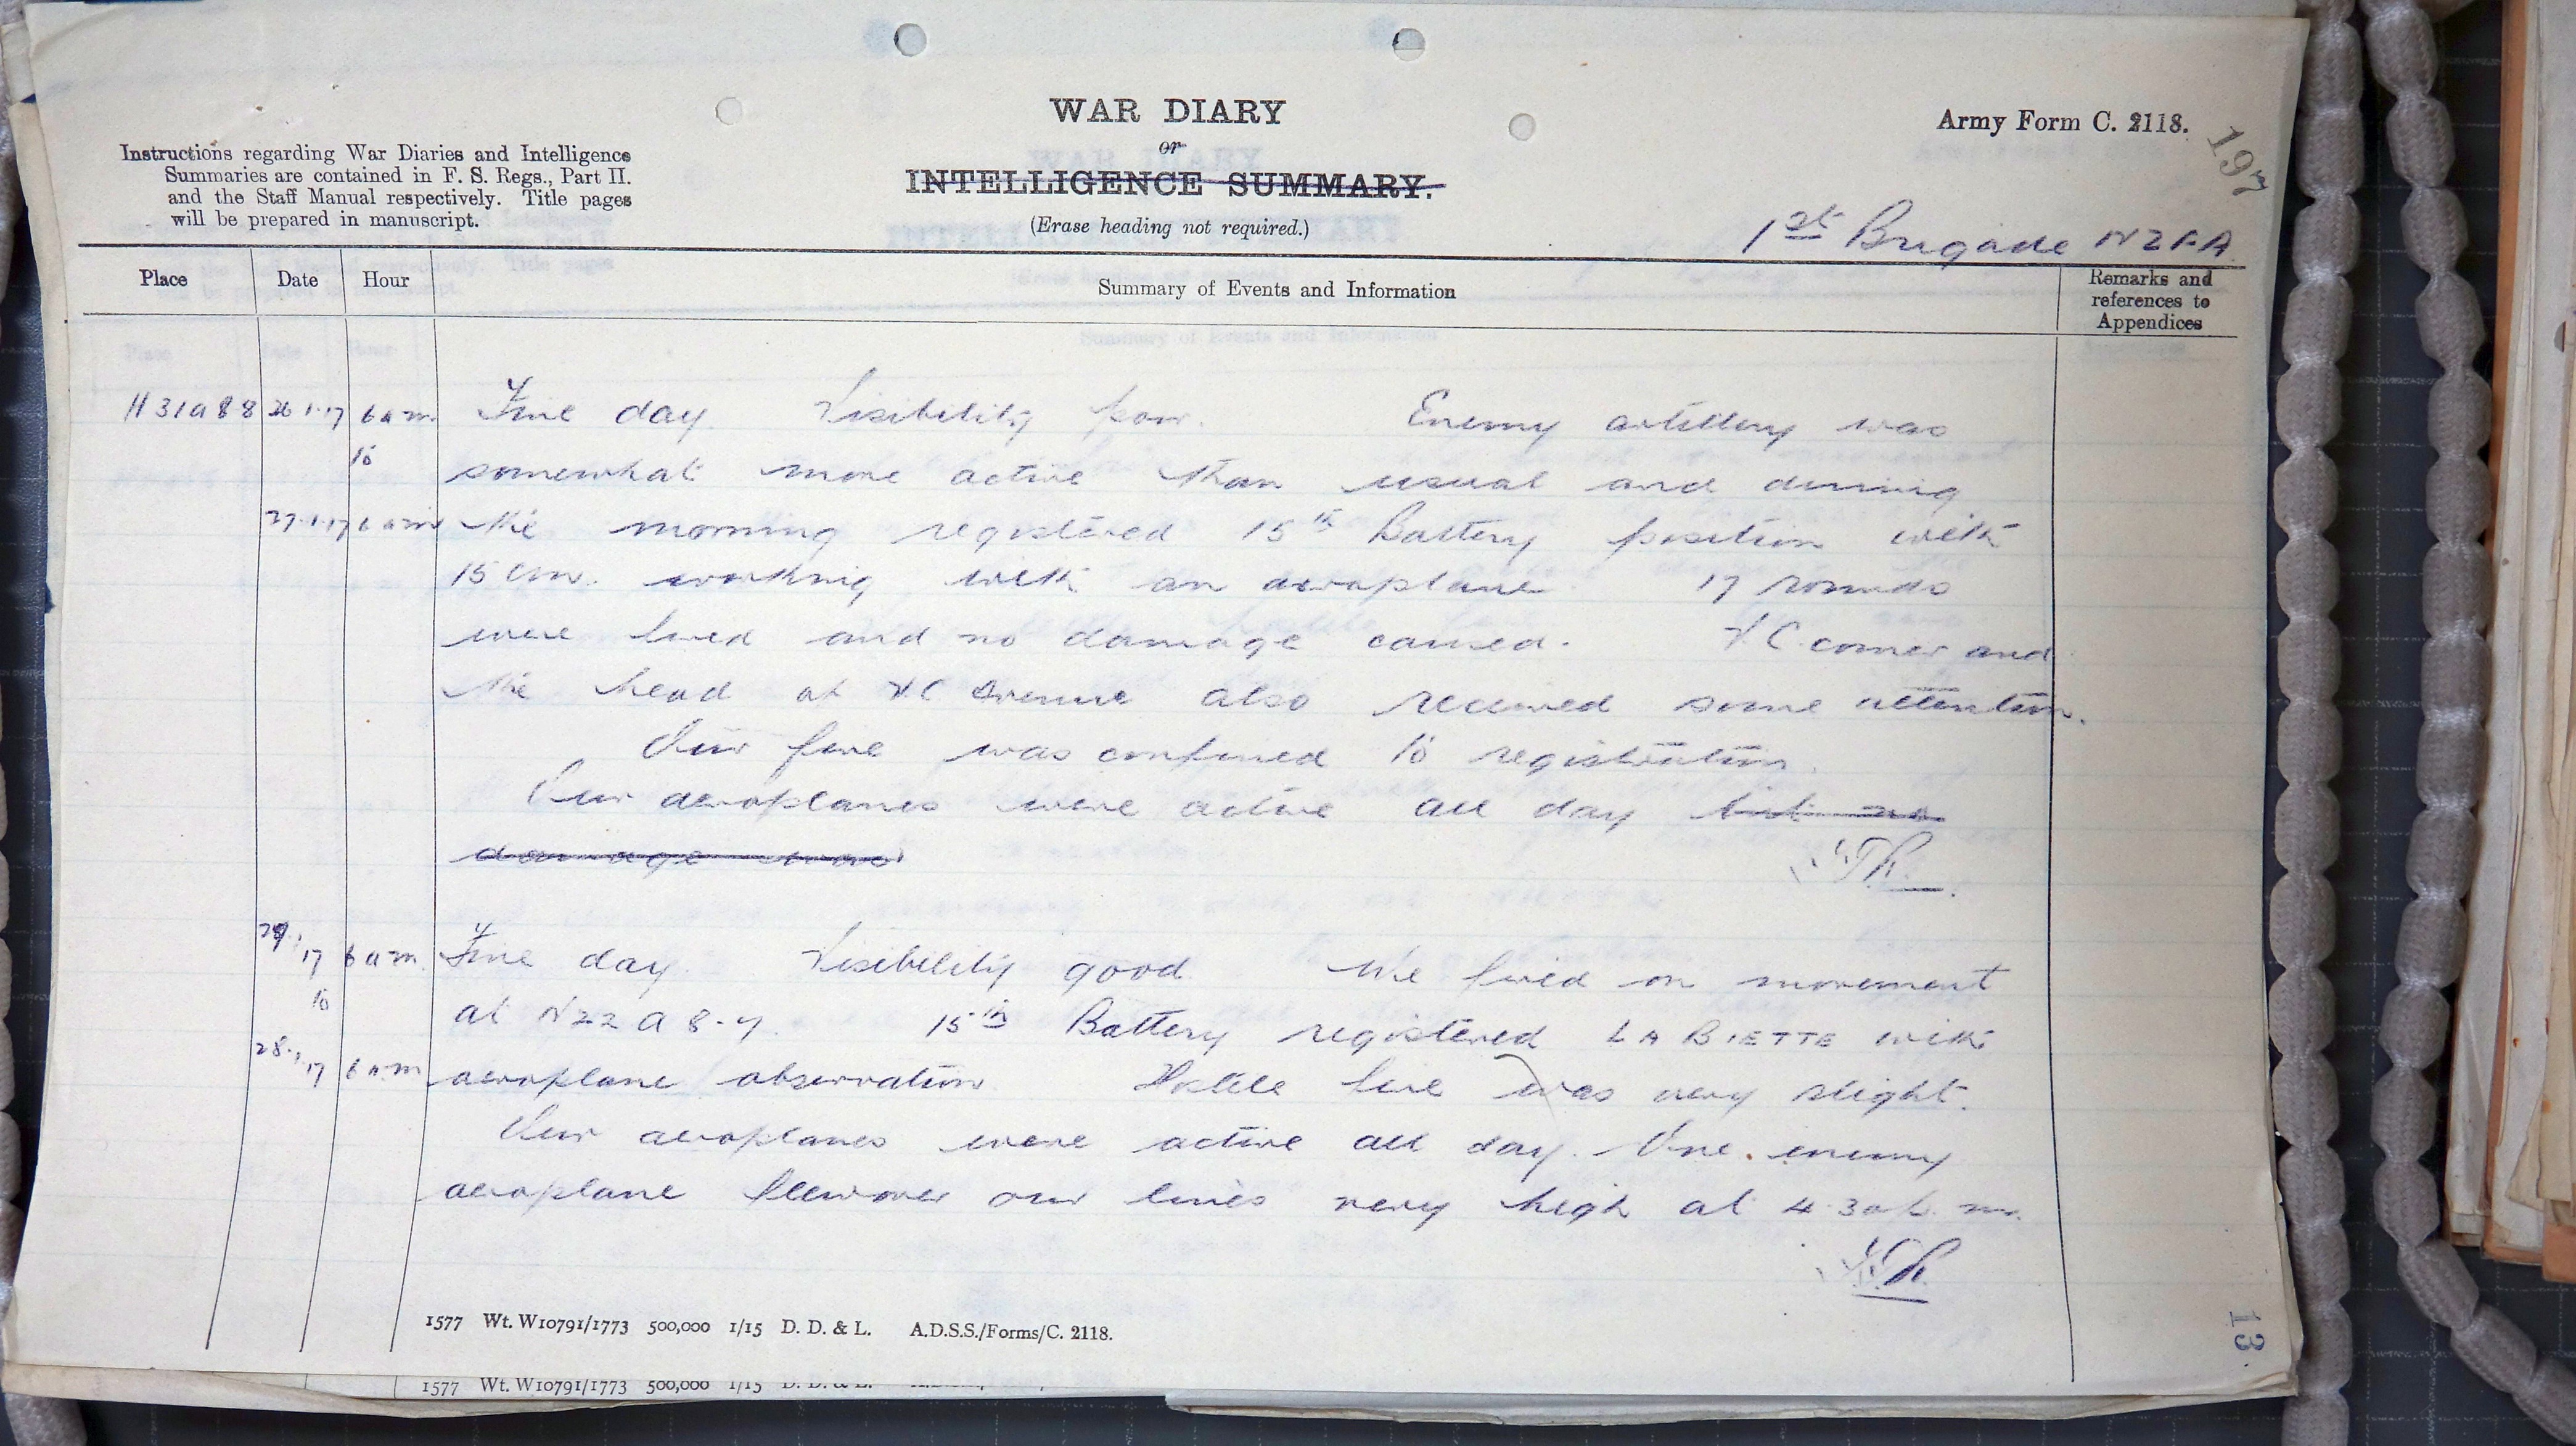 WAR DIARY
or
INTELLIGENCE SUMMARY.
(Erase heading not required.)
Army Form C. 2118.
197
Instructions regarding War Diaries and Intelligence
Summaries are contained in F. S. Regs., Part II.
and the Staff Manual respectively. Title pages
will be prepared in manuscript.
1st Brigade NZFA
Place Date Hour Summary of Events and Information Remarks and
references to
Appendices
H31a88 26 1.17 6 am Fine day. Visibility poor. Enemy artillery was
to somewhat more active than usual and during
27.1.17 6 am the morning registered 15th Battery position with
15 cm. working with an aeroplane. 17 rounds
were fired and no damage caused. VC corner and
the head of VC Avenue also received some attention.
Our fire was confined to registration.
Our aeroplanes were active all day but no
damage was
17 6 am. Fine day. Visibility good We fired on movement
to at N22a 8.7. 15th Battery registered LA BIETTE with
28.1.17 6 am aeroplane observation Hostile fire was very slight.
Our aeroplanes were active all day. One enemy
aeroplane flew over our lines very high at 4.30 p.m.
1577 Wt. W10791/1773 500,000 1/15 D. D. & L. A.D.S.S./Forms/C. 2118.
13
1577 Wt. W10791/1773 500,000 1/15 D. D. & L.